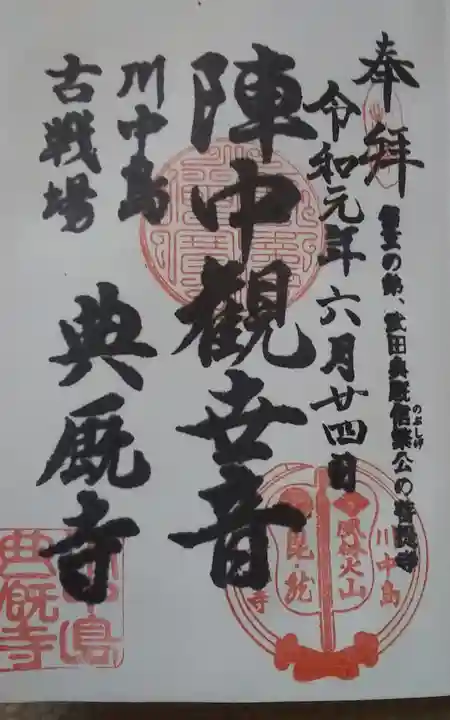 奉拝
信玄の弟、武田典厩信繁公の菩提寺
のぶしげ
令和元年六月廿四日
陣中觀世音
川中島
古戦場
典厩寺
風林火山
川中島
典厩寺